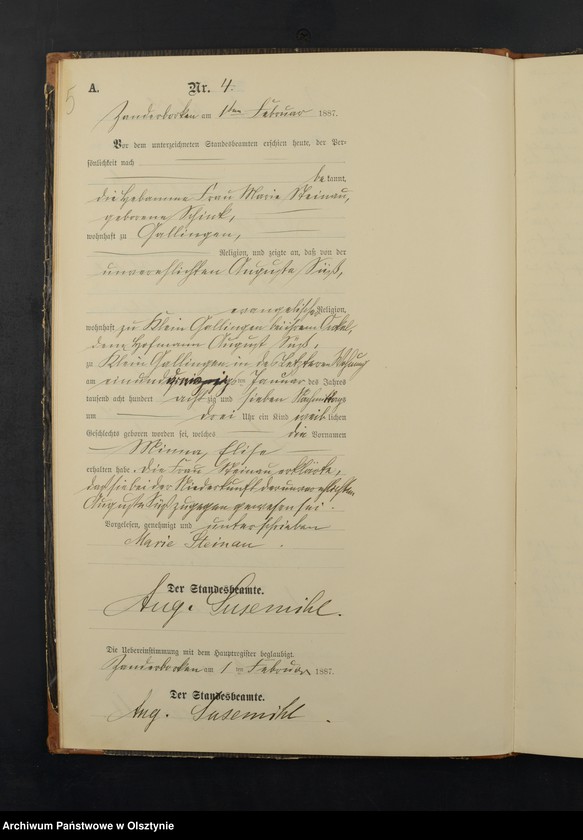 5
A. Nr. 4.
Zanderborken am 1ten Februar 1887.
Vor dem unterzeichneten Standesbeamten erschien heute, der Per-
sönlichkeit nach
bekannt,
die Hebamme Frau Marie Steinau,
geborene Schink,
wohnhaft zu Gallingen,
Religion, und zeigte an, daß von der
unverehlichten Auguste Süß,
evangelischer Religion,
wohnhaft zu Klein Gallingen bei ihrem Onkel,
dem Hofmann August Süß,
zu Klein Gallingen in des Letzteren Wohnung
am einunddreißigsten Januar des Jahres
tausend acht hundert achtzig und sieben Nachmittags
um drei Uhr ein Kind weiblichen
Geschlechts geboren worden sei, welches die Vornamen
Minna, Elise
erhalten habe. Die Frau Steinau erklärte,
daß sie bei der Niederkunft der unverehlichten
Auguste Süß zugegen gewesen sei.
Vorgelesen, genehmigt und unterschrieben
Marie Steinau.
Der Standesbeamte.
Aug. Susemihl.
Die Uebereinstimmung mit dem Hauptregister beglaubigt.
Zanderborken am 1ten Februar 1887.
Der Standesbeamte.
Aug. Susemihl.
Archiwum Państwowe w Olsztynie